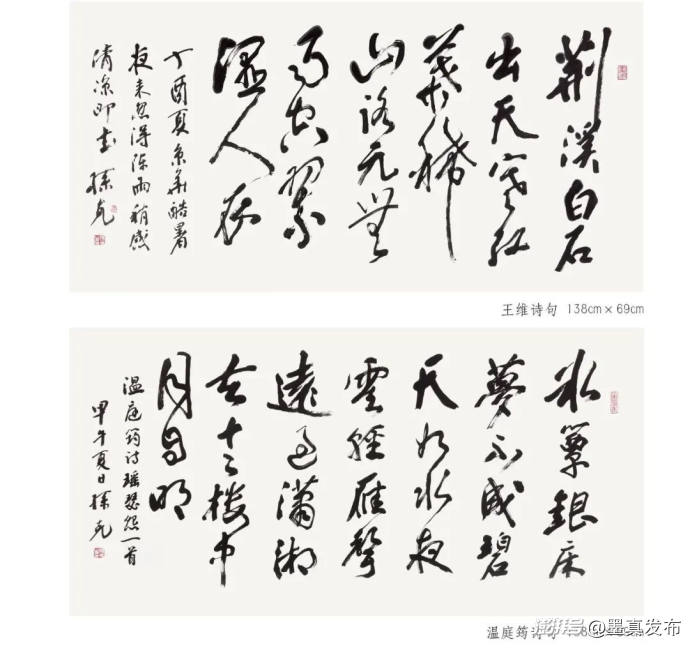 荆溪白石
出天寒红
葉稀
山路元無
雨空翠
湿人衣
丁酉夏京华酷暑
夜来忽得陈雨稍感
清凉即书 孫克
王维诗句 138cm×69cm
冰簟銀床
夢不成碧
天如水夜
雲輕雁聲
遠過瀟湘
去十二楼中
月自明
温庭筠诗瑶瑟怨一首
甲午夏日孫克
温庭筠诗句
澎湃号@墨真发布